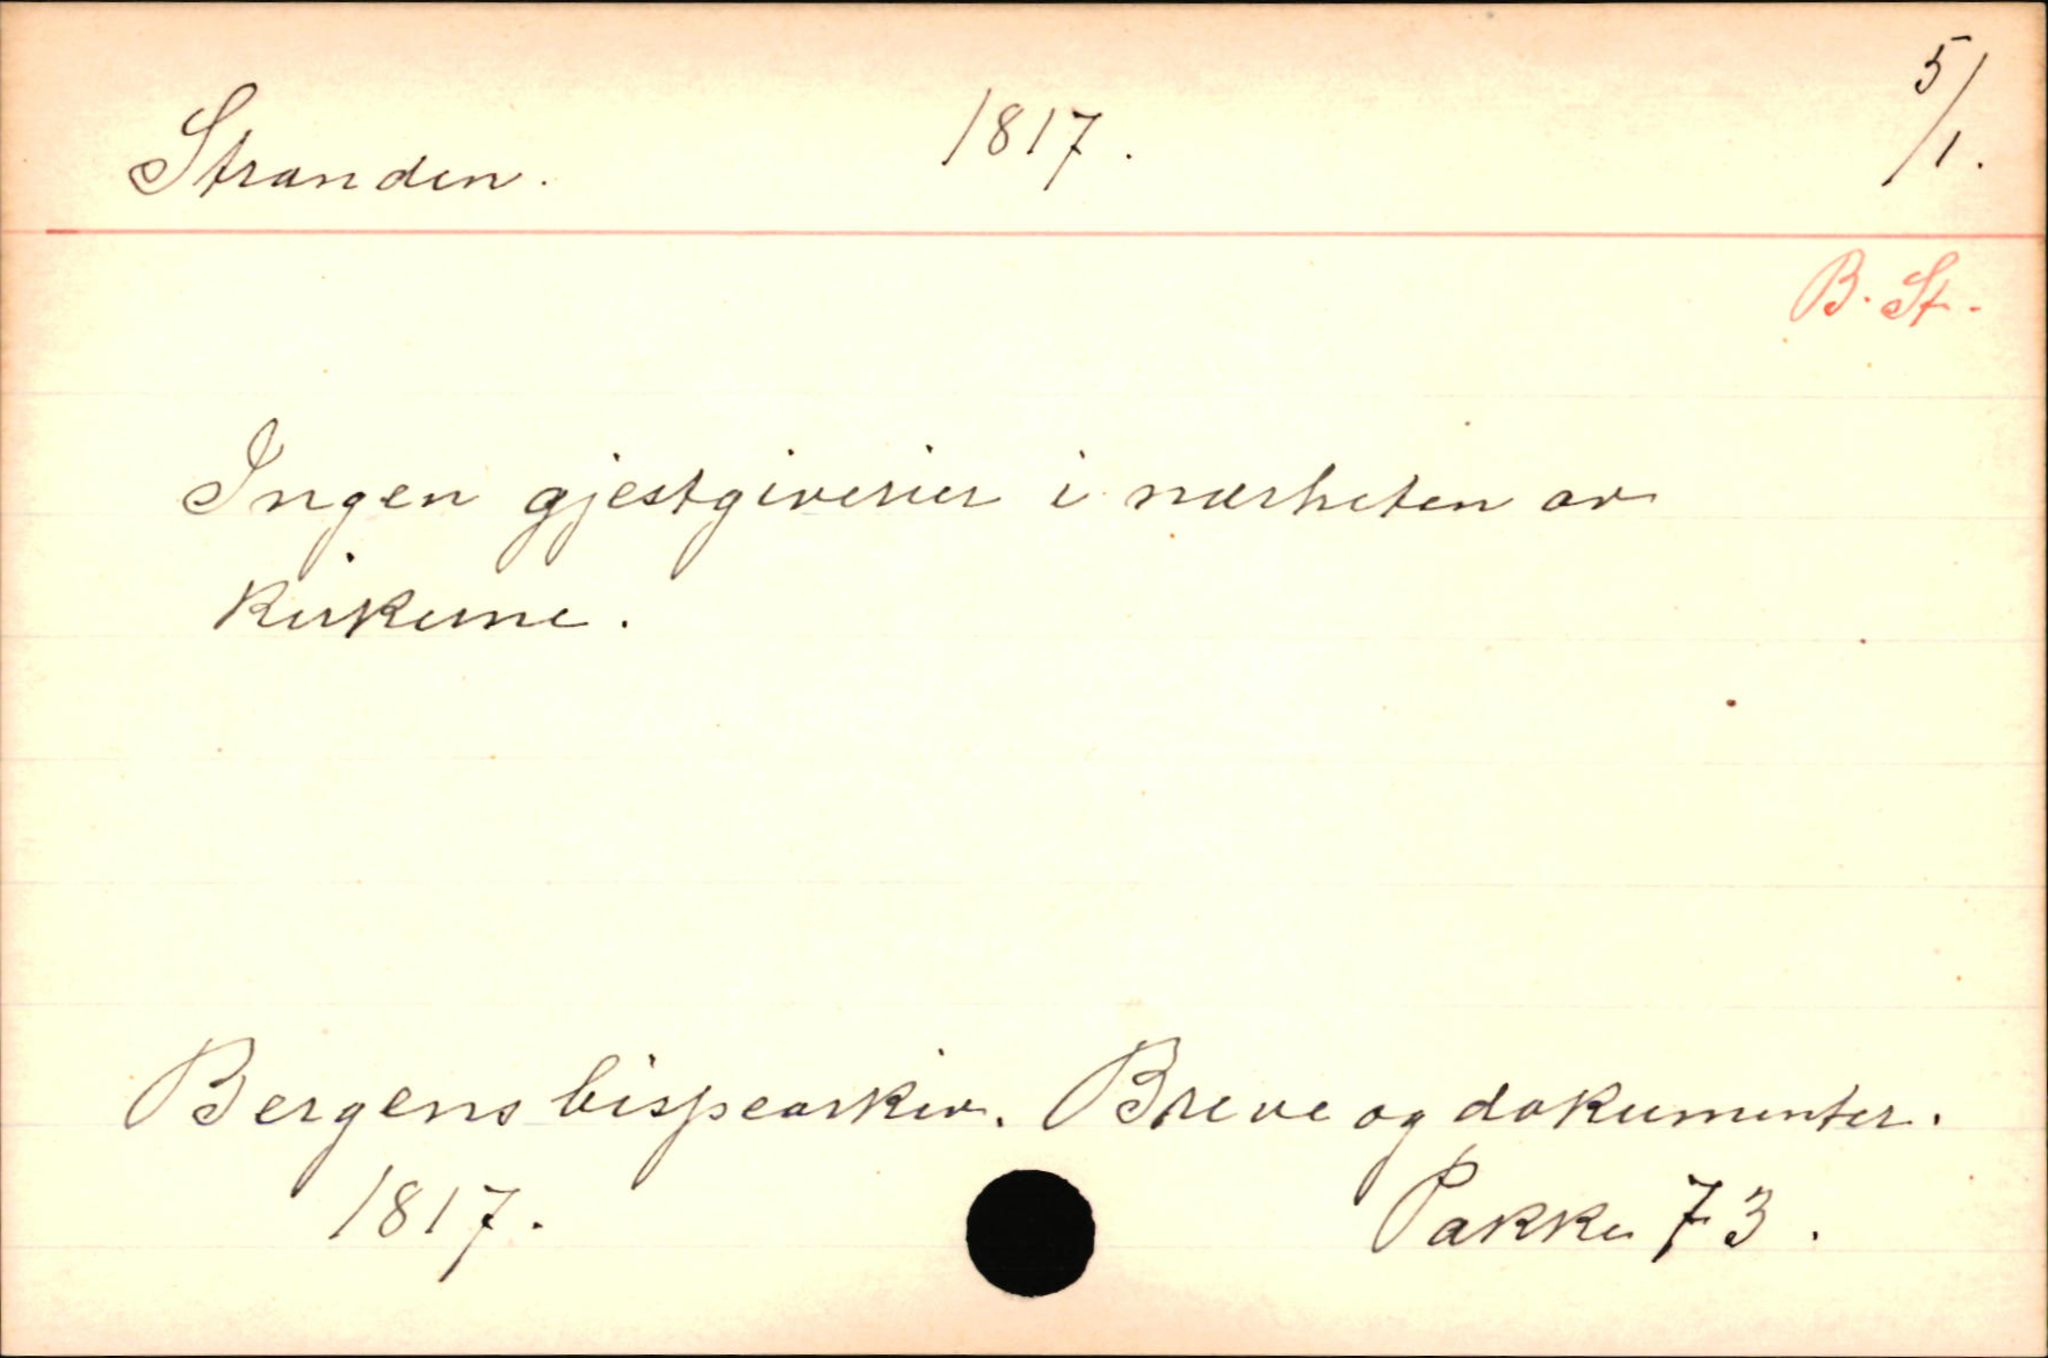 Stranden. 1817. 5/1.
B. St.
Ingen gjestgiverier i nærheten av
kirkerne.
Bergens bispearkiv. Breve og dokumenter.
1817. Pakke 73.